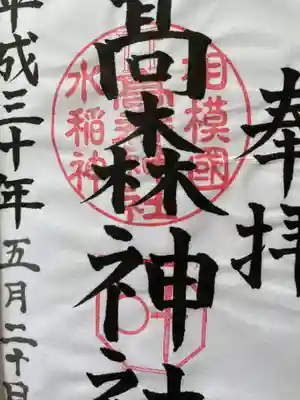 奉拝
相模國
高森神社
水稲神
高森神社
平成三十年五月二十日